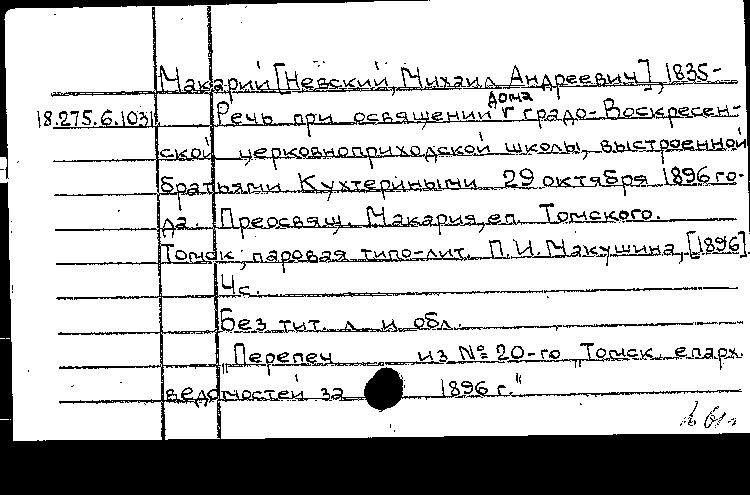 Макарий [Невский, Михаил Андреевич], 1835-
18.275.6.103 Речь при освящении дома градо-Воскресен-
ской церковноприходской школы, выстроенной
братьями Кухтериными 29 октября 1896 го-
да. Преосвящ. Макария, еп. Томского.
Томск, паровая типо-лит. П.И. Макушина, [1896]
4 с.
Без тит. л. и обл.
"Перепеч из № 20-го "Томск. епарх.
ведомостей за 1896 г."